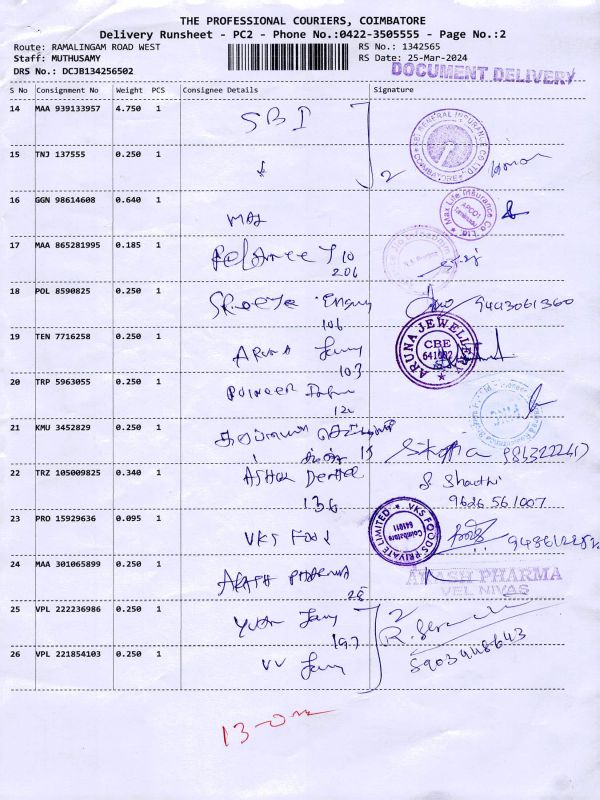 THE PROFESSIONAL COURIERS, COIMBATORE
Delivery Runsheet - PC2 - Phone No.:0422-3505555 - Page No.:2
Route: RAMALINGAM ROAD WEST
RS No.: 1342565
Staff: MUTHUSAMY
RS Date: 25-Mar-2024
DRS No.: DCJB134256502
DOCUMENT DELIVERY
S No Consignment No Weight PCS Consignee Details Signature
14 MAA 939133957 4.750 1 SBI
SBI GENERAL INSURANCE CO LTD COIMBATORE
15 TNJ 137555 0.250 1 2
16 GGN 98614608 0.640 1 MAX
Max Life Insurance Co Ltd
17 MAA 865281995 0.185 1 Reliance J 10
206
18 POL 8590825 0.250 1 9443061360
106
19 TEN 7716258 0.250 1 ARUNA
103
ARUNA JEWELLERY CBE
20 TRP 5963055 0.250 1 PIONEER
122
21 KMU 3452829 0.250 1
22 TRZ 105009825 0.340 1 ASHOK Dental S Shanthi
136 9626 561007
23 PRO 15929636 0.095 1 VKS FOOD
VKS FOODS PRIVATE LIMITED Coimbatore 641011
24 MAA 301065899 0.250 1 AKASH PHARMA
28
AKASH PHARMA
VEL NIVAS
25 VPL 222236986 0.250 1 2
197
26 VPL 221854103 0.250 1 VV 8903448643
13-One